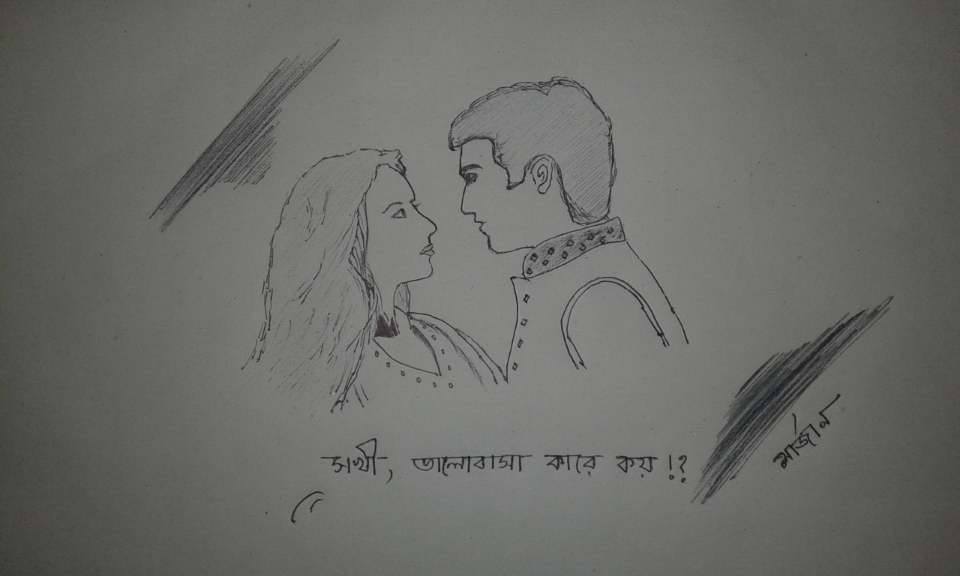 সখী, ভালোবাসা কারে কয় !?
মার্জান